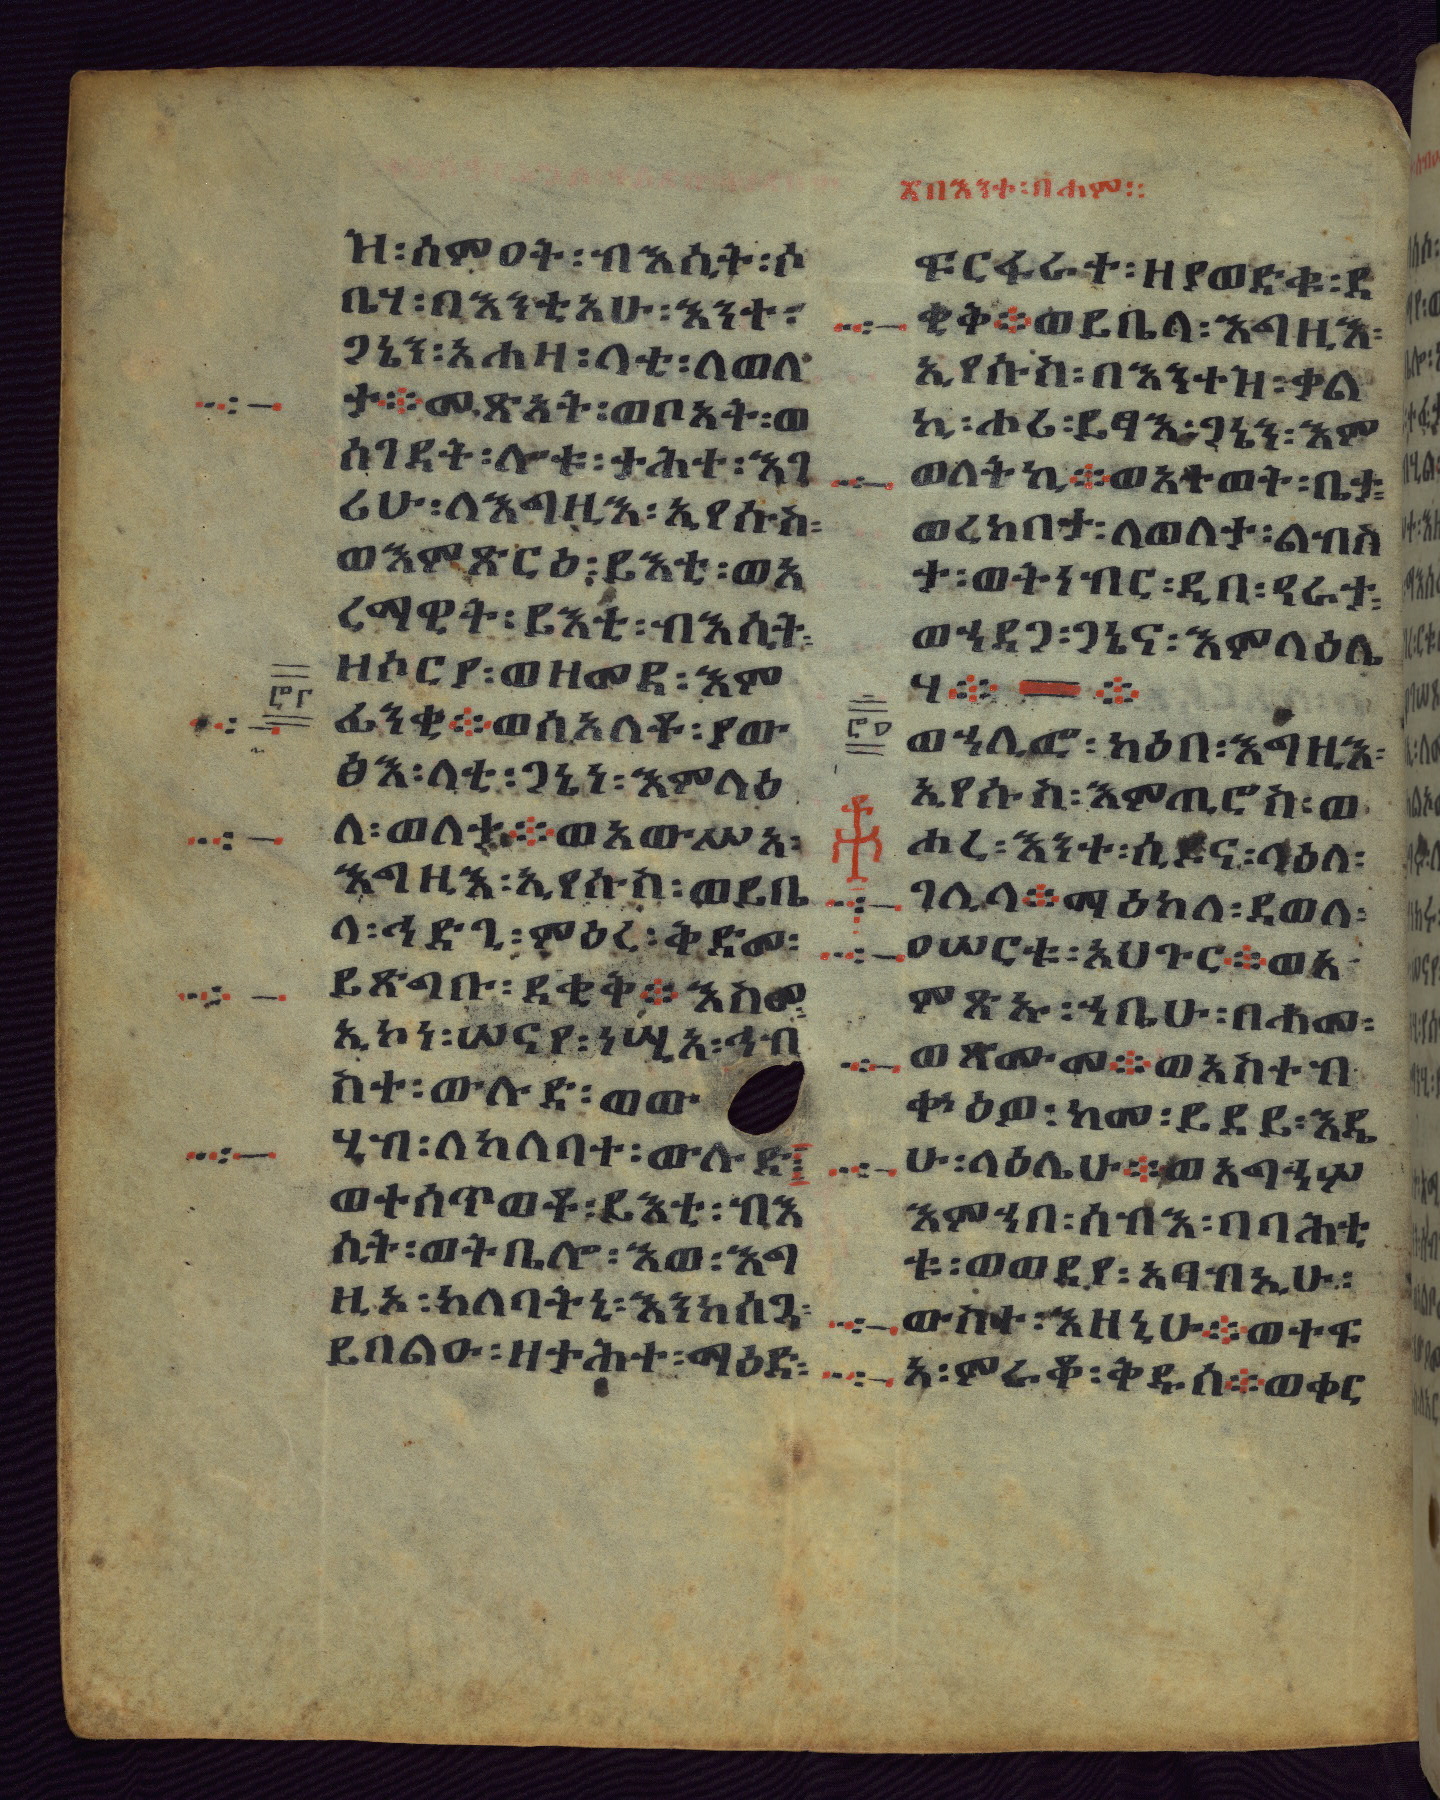 ፳በእንተ፡በሐም፡፡
ዝ፡ሰምዐት፡ብእሲት፡ሶ
ቤሃ፡በእንቲአሁ፡እንተ፡
ጋኔን፡አሐዛ፡ላቲ፡ለወለ
ታ፨መጽአት፡ወቦአት፡ወ
ሰገዳት፡ሎቱ፡ታሕተ፡እገ
ሪሁ፡ለእግዚእ፡ኢየሱስ፡
ወእምጽርዕ፡ይእቲ፡ወአ
ረማዊት፡ይእቲ፡ብእሲት፡
ዘሶርያ፡ወዘመዳ፡እም
ፊንቂ፨ወሰአለቶ፡ያው
ፅእ፡ላቲ፡ጋኔነ፡እምላዕ
ለ፡ወለታ፨ወአውሥአ፡
እግዚእ፡ኢየሱስ፡ወይቤ
ላ፡ኅድጊ፡ምዕረ፡ቅድመ፡
ይጽግቡ፡ደቂቅ፨እስመ፡
ኢኮነ፡ሠናየ፡ነሢአ፡ኅብ
ስተ፡ውሉድ፡ወው
ሂብ፡ለከለባተ፡ውሉድ፡
ወተሰጥወቶ፡ይእቲ፡ብእ
ሲት፡ወትቤሎ፡እወ፡እግ
ዚእ፡ከለባትኒ፡እንከሰኬ፡
ይበልዑ፡ዘታሕተ፡ማዕድ፡
ፍርፋራተ፡ዘያወድቁ፡ደ
ቂቅ፨ወይቤላ፡እግዚእ፡
ኢየሱስ፡በእንተዝ፡ቃል
ኪ፡ሐሪ፡ይፃእ፡ጋኔን፡እም
ወለትኪ፨ወአተወት፡ቤታ፡
ወረከበታ፡ለወለታ፡ልብስ
ታ፡ወትነብር፡ዲበ፡ዓራታ፡
ወኀደጋ፡ጋኔና፡እምላዕሌ
ሃ፨ ፨
፴፫
፴፬
ወኀሊፎ፡ካዕበ፡እግዚእ፡
ኢየሱስ፡እምጢሮስ፡ወ
ሐረ፡እንተ፡ሲዶና፡ላዕለ፡
ገሊላ፨ማዕከለ፡ደወለ፡
ዐሠርቱ፡አህጉር፨ወአ
ምጽኡ፡ኀቤሁ፡በሐመ፡
ወጽሙመ፨ወአስተብ
ቍዕዎ፡ከመ፡ይደይ፡እዴ
ሁ፡ላዕሌሁ፨ወአግኀሦ
እምኀበ፡ሰብእ፡በባሕቲ
ቱ፡ወወደየ፡አፃብኢሁ፡
ውስተ፡እዘኒሁ፨ወተፍ
አ፡ምራቆ፡ቅዱሰ፨ወቀር